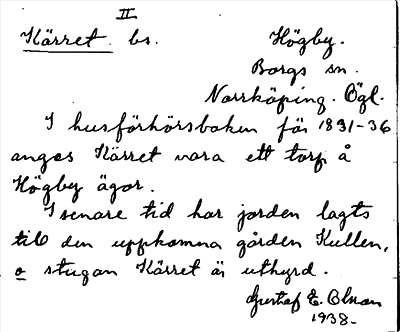 II
Kärret. bs. Högby.
Borgs sn.
Norrköping. Ögl.
I husförhörsboken för 1831-36
anges Kärret vara ett torp å
Högby ägor.
I senare tid har jorden lagts
till den uppkomna gården Kullen,
o stugan Kärret är uthyrd.
Gustaf E. Olsson
1938-